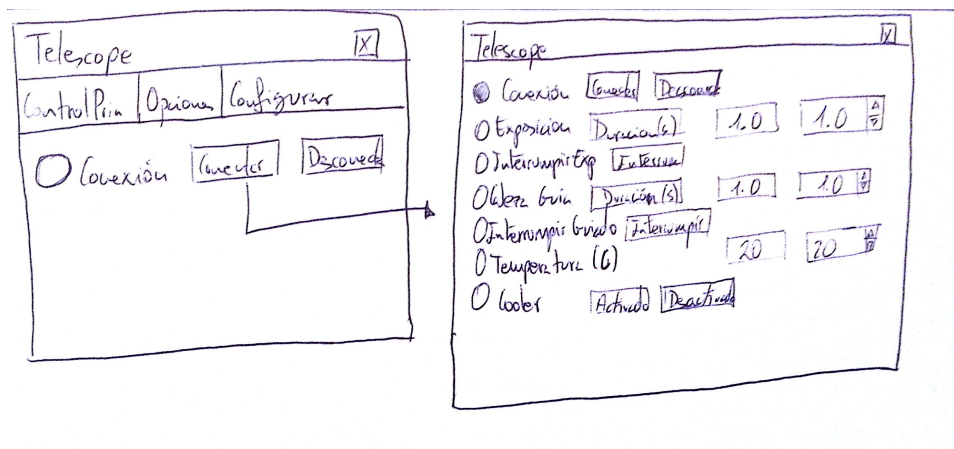 Telescope X
Control Prin Opciones Configurar
Conexión Conectar Desconecta
Telescope X
Conexión Conectar Desconect
Exposicion Duracion(s) 1.0 1.0
Interrumpir Exp Interrum
Guia Duración(s) 1.0 1.0
Interrumpir Guiado Interrumpir
Temperatura (C) 20 20
Cooler Activado Deactivado